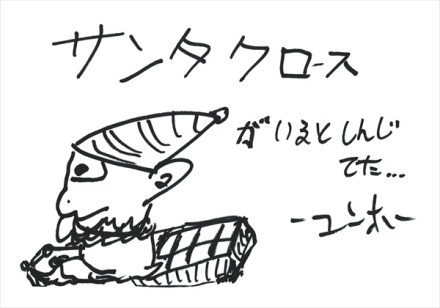 サンタクロース
がいるとしんじ
てた...
-ユンホ-